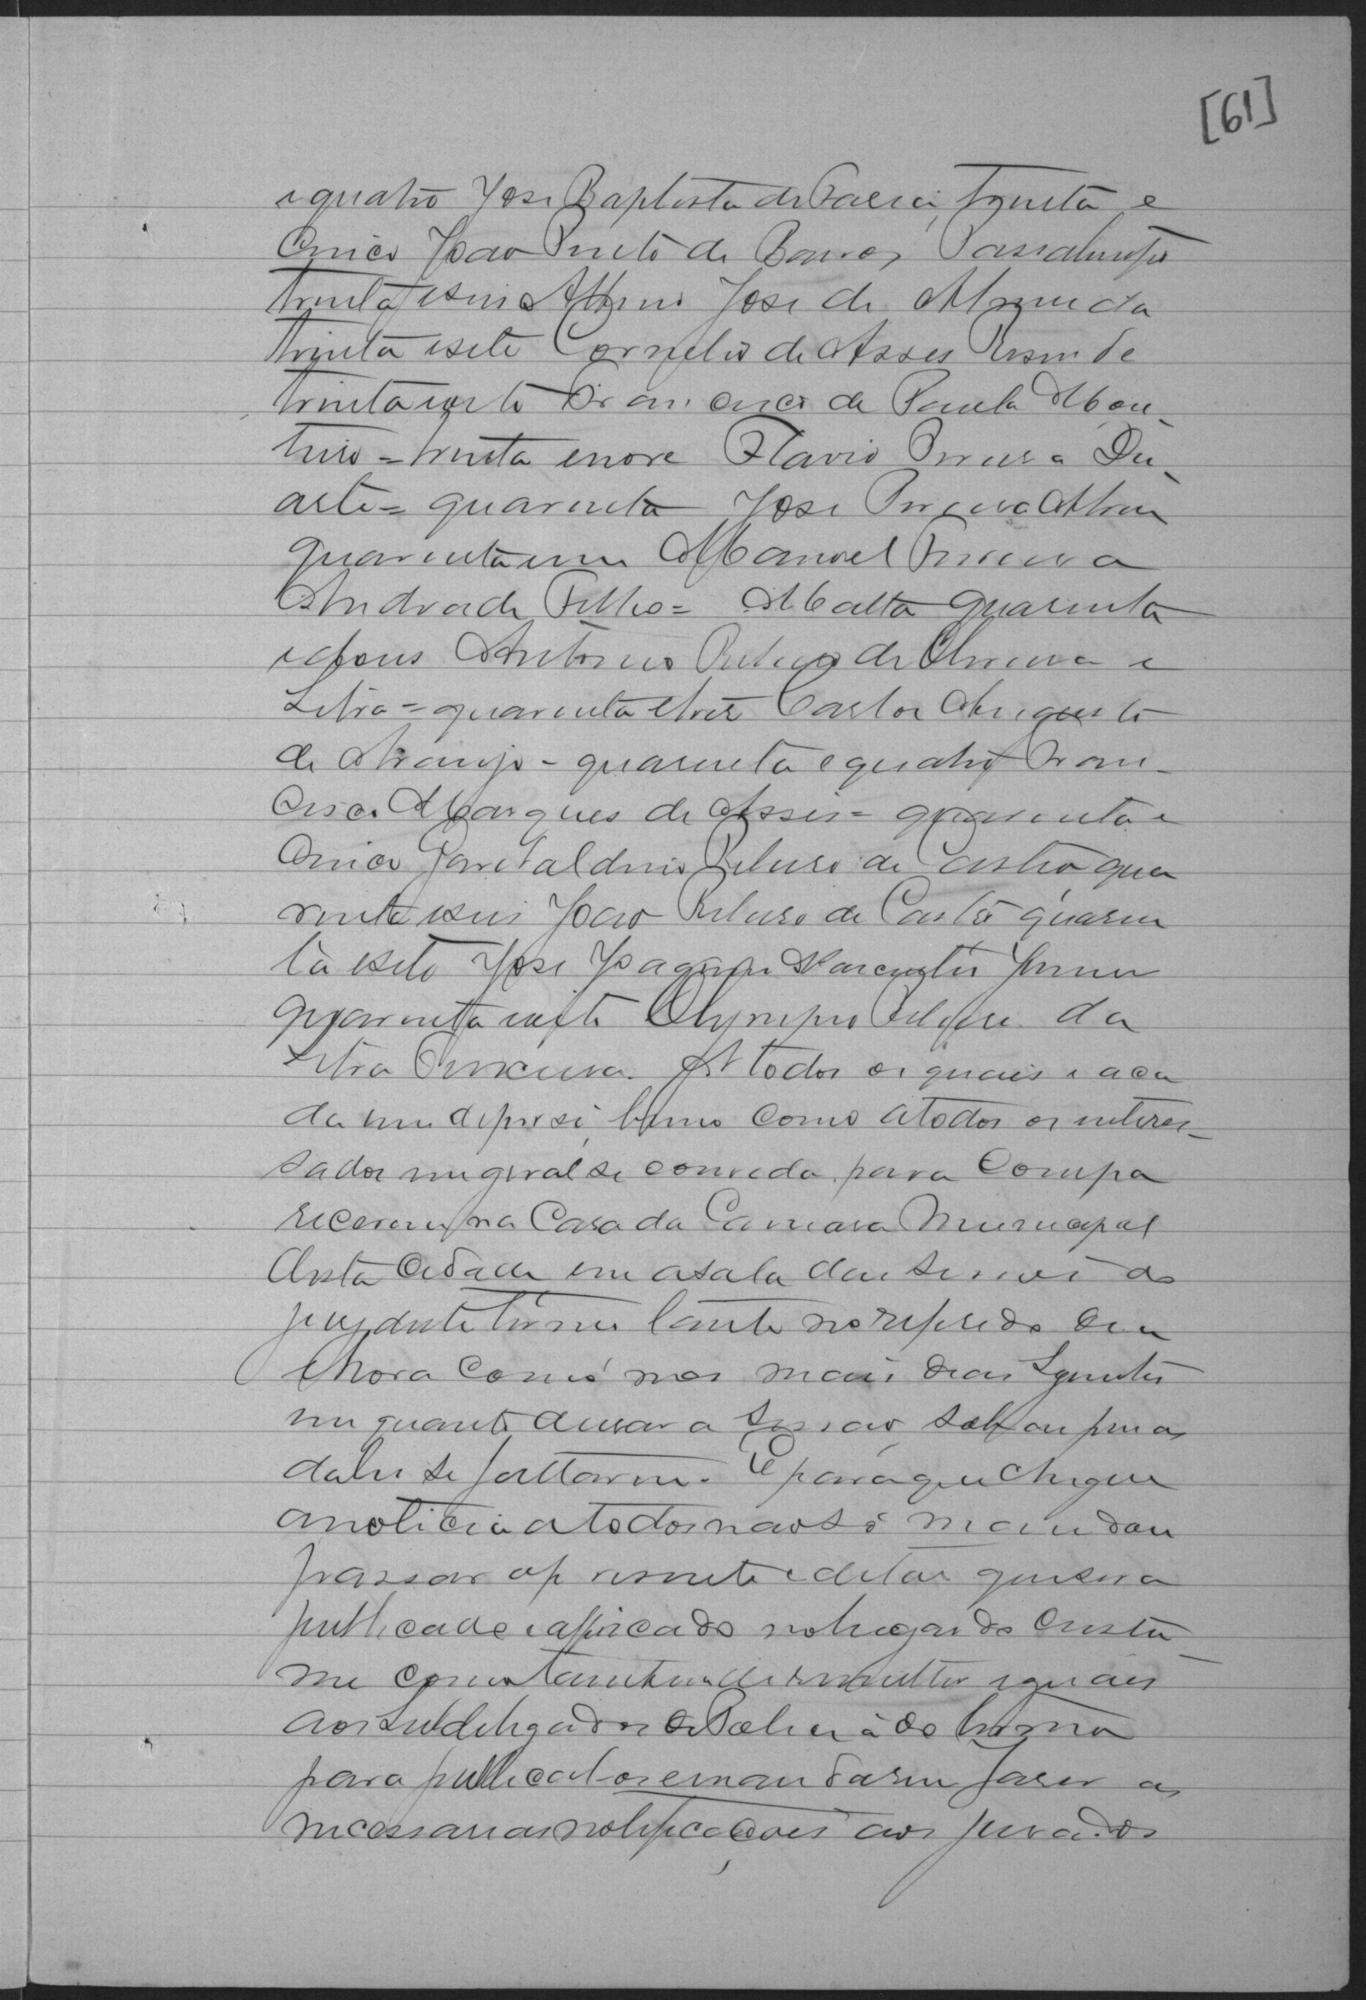 [61]
e quatro José Baptista de Faria, trinta e
cinco João Pinto de Barros Passatempo
trinta e seis Albino José de Almeida
trinta e sete Cornelio de Assis Resende
trinta e oito Francisco de Paula Mon-
teiro = trinta e nove Flavio Pereira Du-
arte = quarenta José Pereira Alvim
quarenta e um Manoel Ferreira
Andrade Filho = Malta quarenta
e dous Antonio Ribeiro de Oliveira e
Silva = quarenta e tres Carlos Augusto
de Araujo - quarenta e quatro Fran-
cisco Marques de Assis = quarenta e
cinco Garibaldino Ribeiro de Castro qua
renta e seis João Ribeiro de Castro quaren
ta e sete José Joaquim Junior
quarenta e oito Olympio Ribeiro da
Silva Pereira. A todos os quais e a ca
da um de per si, bem como a todos os interes-
sados em geral se convida para compa
recerem na Casa da Camara Municipal
desta cidade em a sala das sessões do
jury tanto no referido dia e
hora como nos mais dias seguintes
em quanto durar a sessão sob as penas
da lei se faltarem. E para que chegue
a noticia a todos não só mandou
passar o presente edital que será
publicado e afficado no lugar do costu-
me como tambem remetter iguaes
aos Subdelegados de Policia do termo
para publical-os e mandarem faser as
necessarias notificações aos jurados